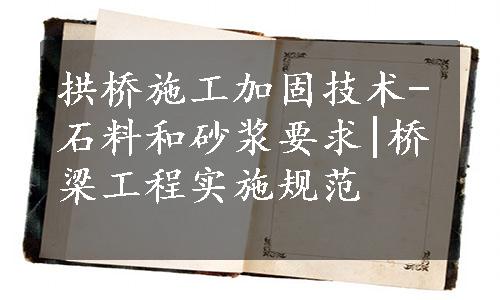 拱桥施工加固技术-
石料和砂浆要求|桥
梁工程实施规范